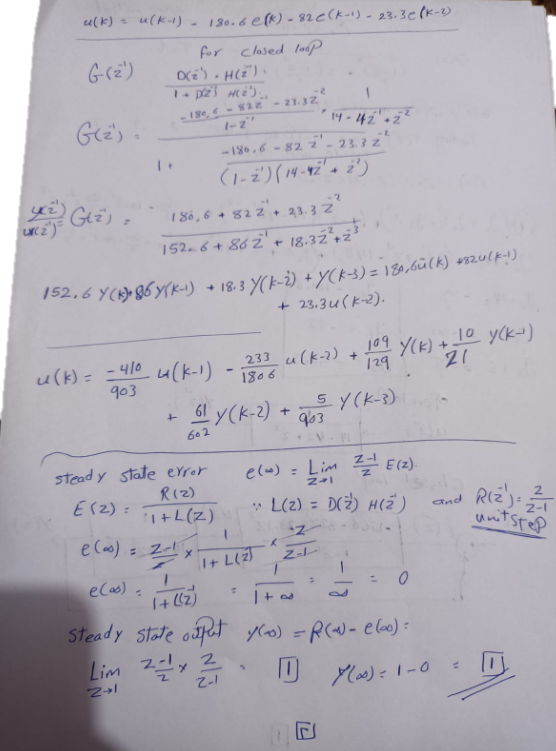 u(k) = u(k-1) - 180.6 e(k) - 82 e(k-1) - 23.3 e(k-2)
for closed loop
G(z⁻¹) D(z⁻¹) · H(z⁻¹) / 1 + D(z⁻¹) H(z⁻¹)
G(z⁻¹) = (-180.6 - 82z⁻¹ - 23.3z⁻² / 1 - z⁻¹ · 1 / 14 - 4z⁻¹ + z⁻²) / (1 + -180.6 - 82z⁻¹ - 23.3z⁻² / (1 - z⁻¹)(14 - 4z⁻¹ + z⁻²))
y(z⁻¹) / u(z⁻¹) = G(z⁻¹) = 180.6 + 82z⁻¹ + 23.3z⁻² / 152.6 + 86z⁻¹ + 18.3z⁻² + z⁻³
152.6 Y(k) + 86 Y(k-1) + 18.3 Y(k-2) + Y(k-3) = 180.6u(k) + 82u(k-1)
+ 23.3u(k-2).
u(k) = -410/903 u(k-1) - 233/1806 u(k-2) + 109/129 Y(k) + 10/21 Y(k-1)
+ 61/602 Y(k-2) + 5/903 Y(k-3)
steady state error e(∞) = Lim z→1 z-1/z E(z).
E(z) = R(z) / 1 + L(z) ∵ L(z) = D(z⁻¹) H(z⁻¹) and R(z⁻¹) = z/z-1
unit step
e(∞) = z-1/z × 1/1 + L(z) × z/z-1
e(∞) = 1/1 + L(z⁻¹) = 1/1 + ∞ = 1/∞ = 0
steady state output Y(∞) = R(∞) - e(∞) =
Lim z→1 z-1/z × z/z-1 = 1 Y(∞) = 1 - 0 = 1